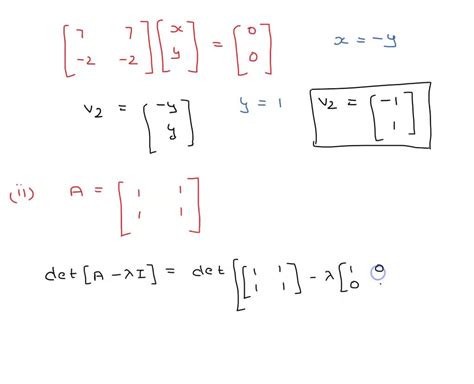 [7 7; -2 -2] [x; y] = [0; 0] x = -y
v₂ = [-y; y] y = 1 v₂ = [-1; 1]
(ii) A = [1 1; 1 1]
det[A - λI] = det[[1 1; 1 1] - λ[1 0; 0